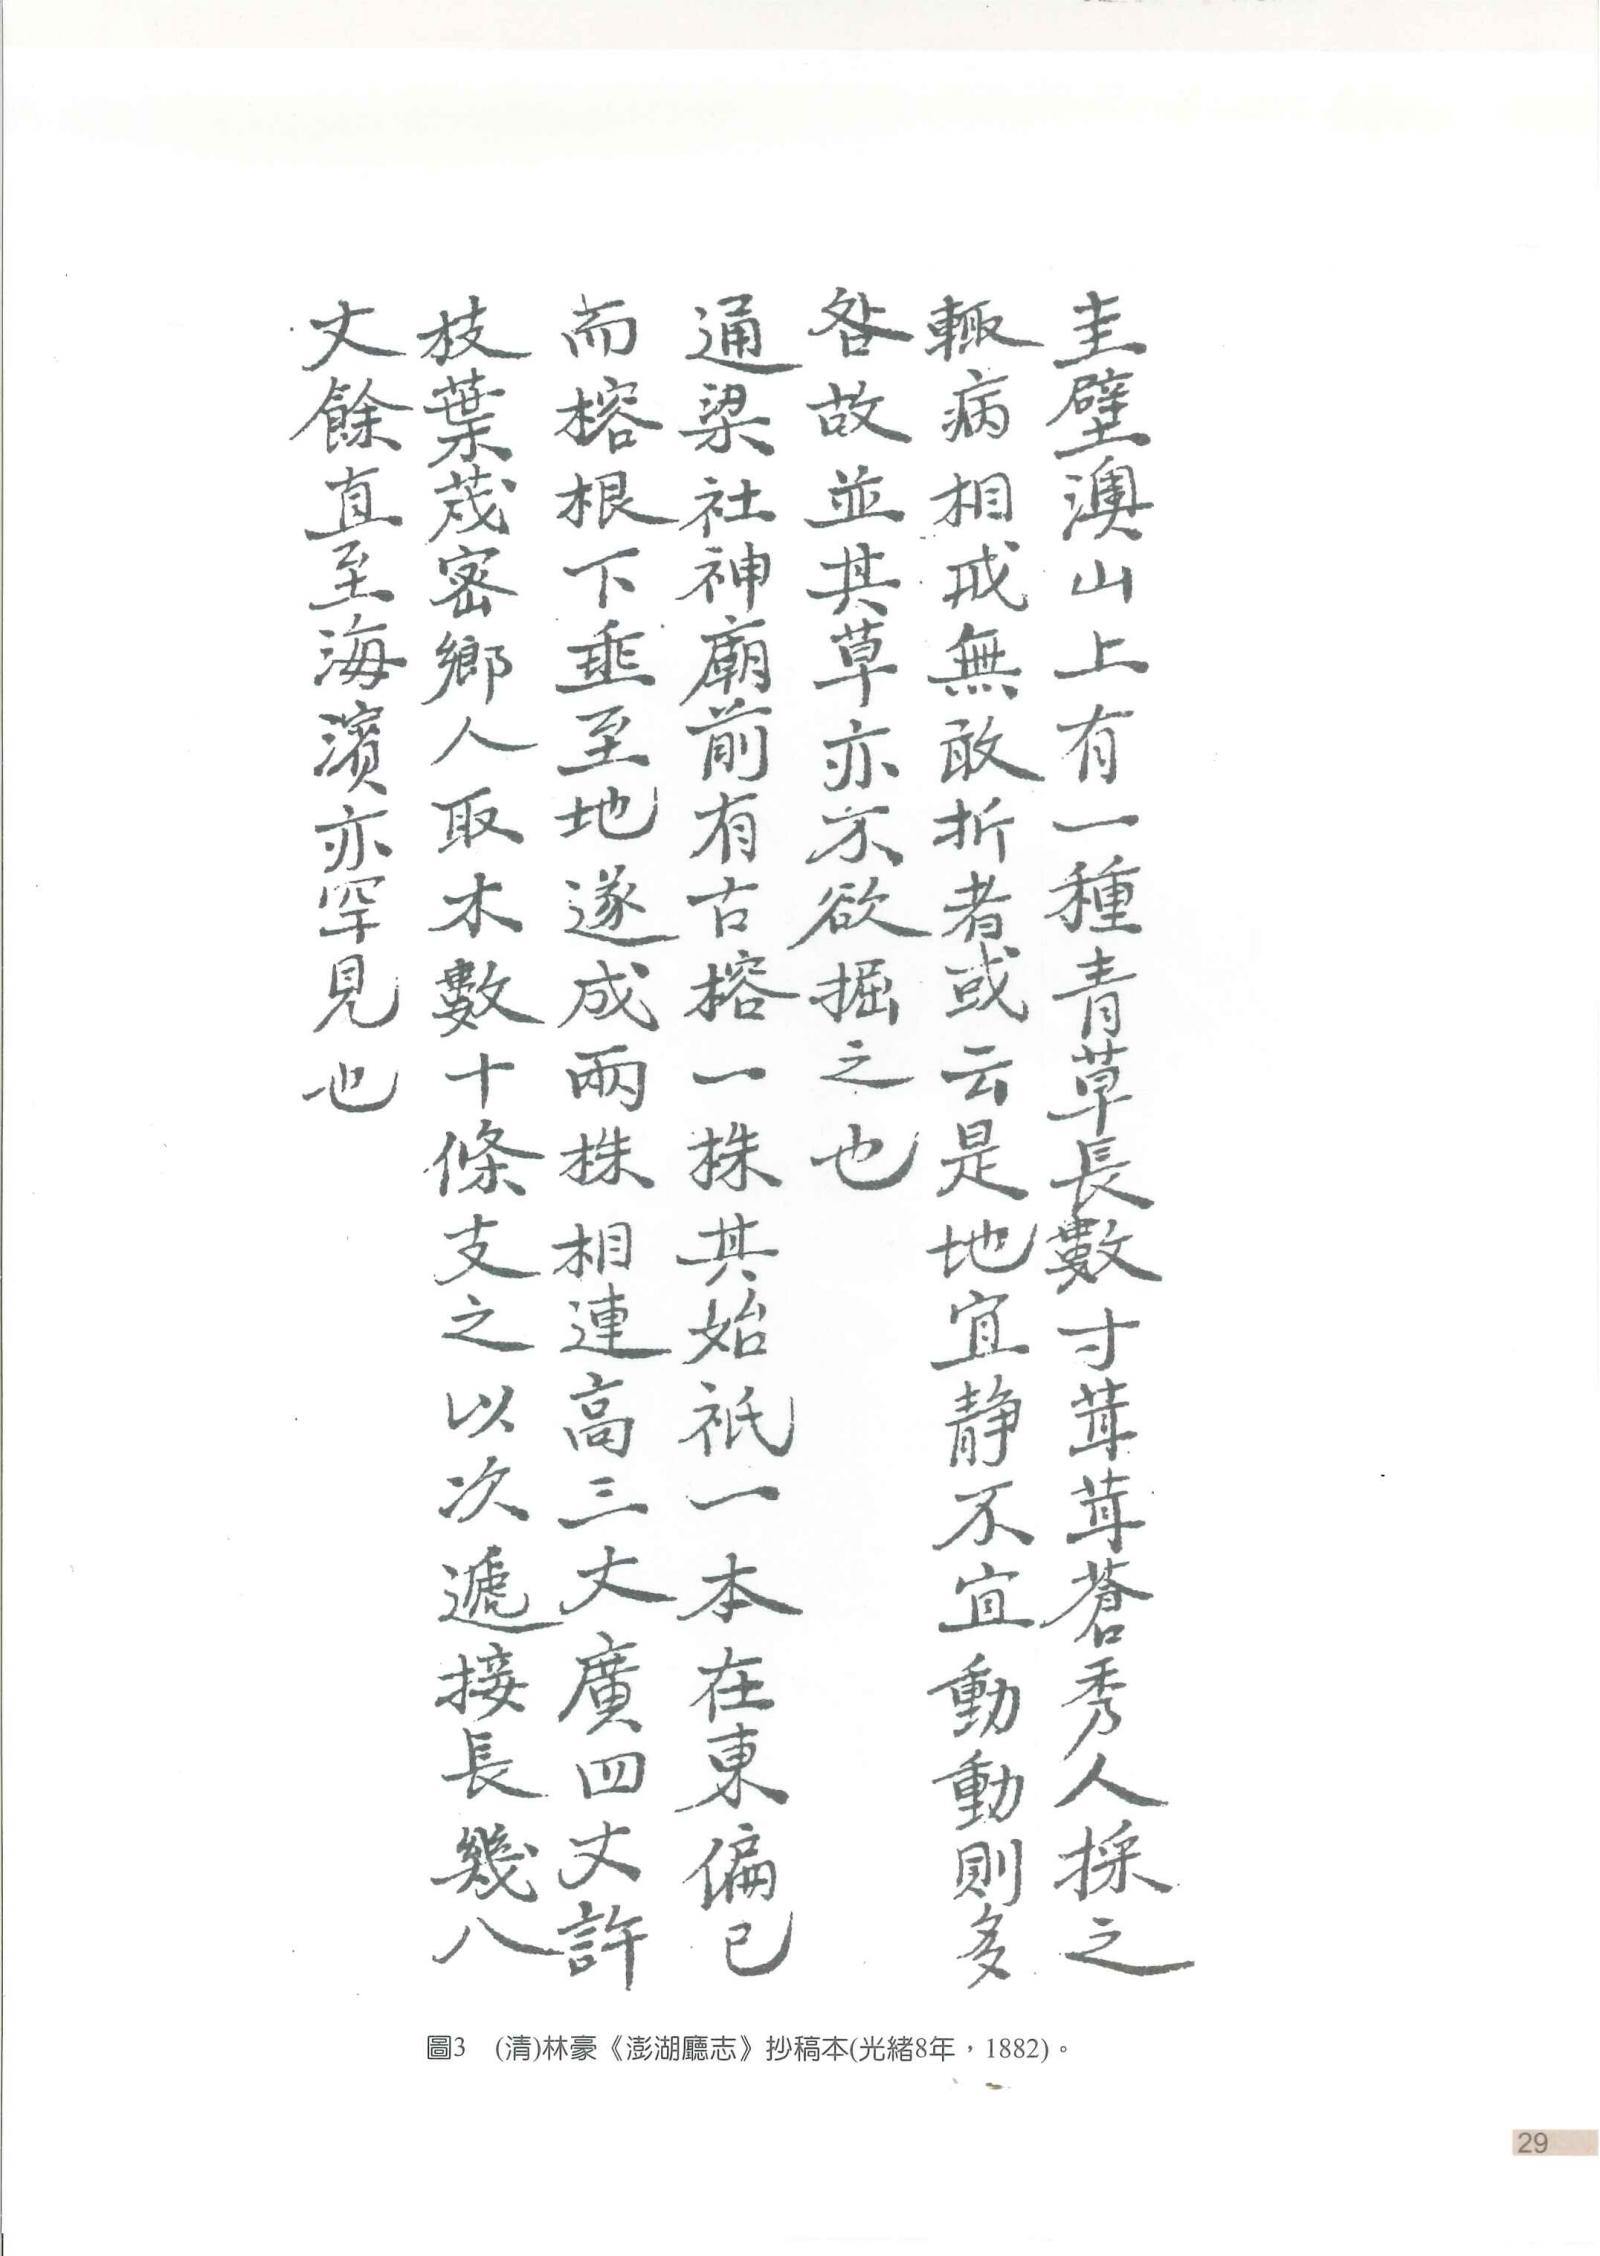 圭壁澳山上有一種青草長數寸茸茸蒼秀人採之
輙病相戒無敢折者或云是地宜靜不宜動動則多
咎故並其草亦不欲掘之也
通梁社神廟前有古榕一株其始祇一本在東偏已
而榕根下垂至地遂成兩株相連高三丈廣四丈許
枝葉茂密鄉人取木數十條支之以次遞接長幾八
丈餘直至海濱亦罕見也
圖3 (清)林豪《澎湖廳志》抄稿本(光緒8年，1882)。
29